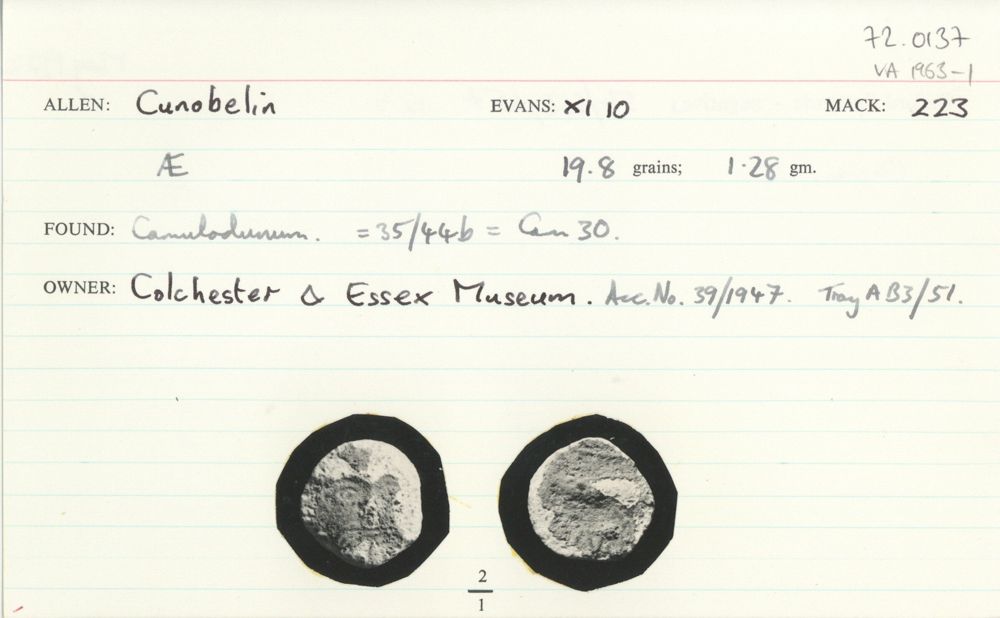 72.0137
VA 1963-1
ALLEN: Cunobelin EVANS: XI 10 MACK: 223
Æ 19.8 grains; 1.28 gm.
FOUND: Camulodunum. = 35/44b = Cam 30.
OWNER: Colchester & Essex Museum. Acc. No. 39/1947. Tray AB3/51.
2
1